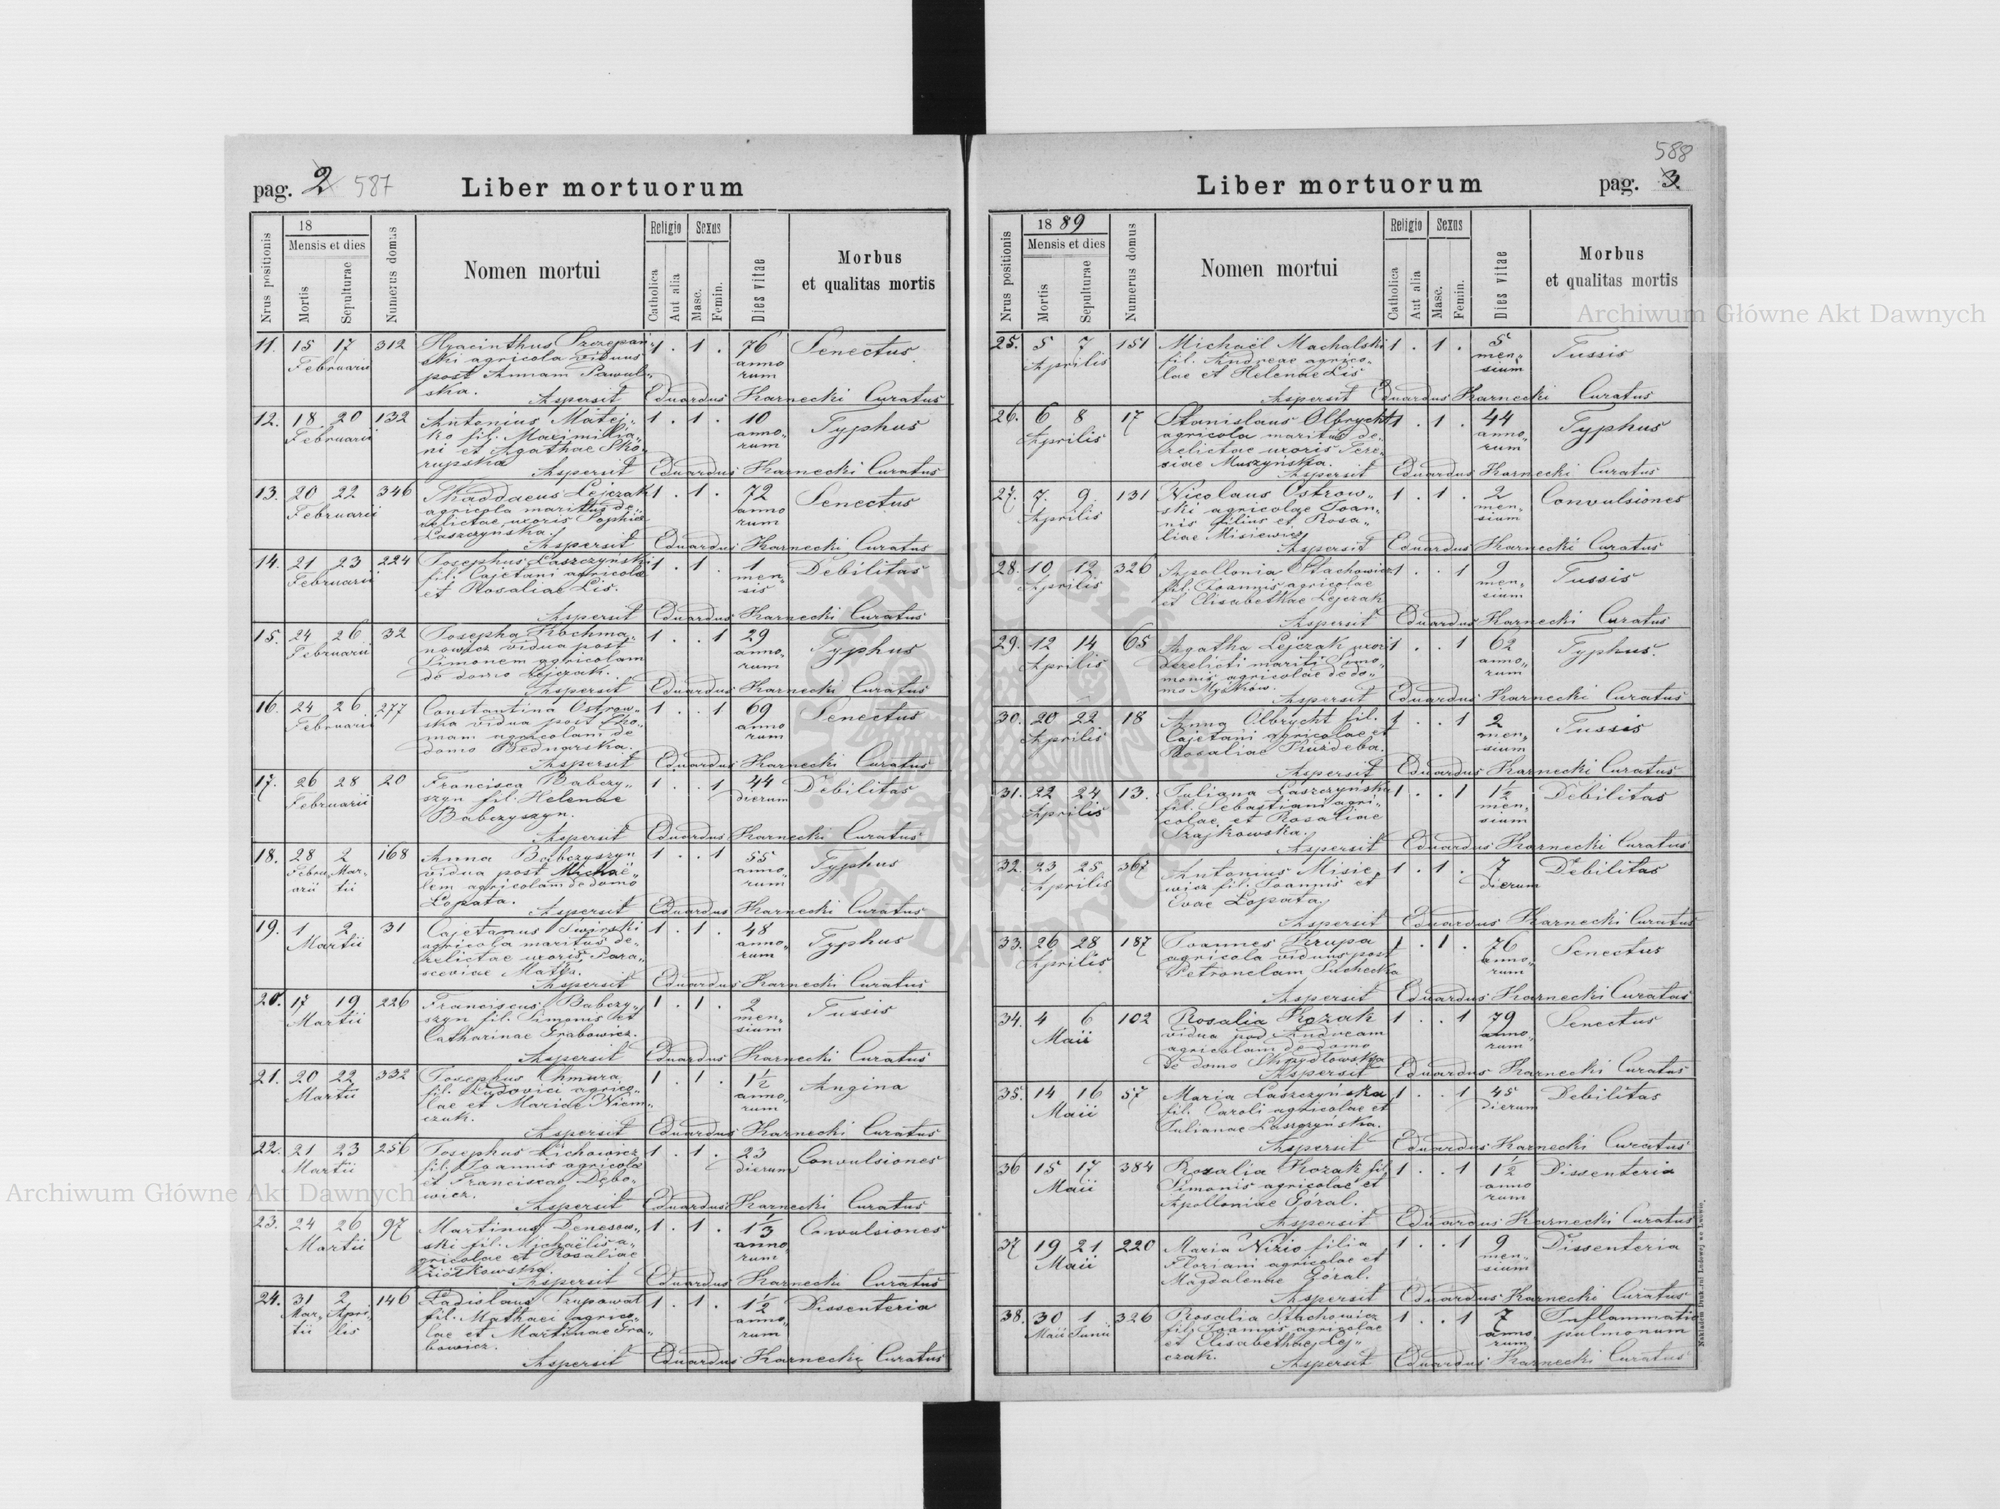 pag. 2 587
Liber mortuorum
Nrus positionis
18
Mensis et dies
Mortis
Sepulturae
Numerus domus
Nomen mortui
Religio
Catholica
Aut alia
Sexus
Masc.
Femin.
Dies vitae
Morbus
et qualitas mortis
11. 15 17 312 Hyacinthus Szczepań- 1 . 1 . 76 Senectus
Februarii ski agricola viduus anno
post Annam Pawul- rum
ska. Aspersit Eduardus Karnecki Curatus
12. 18 20 132 Antonius Matej- 1 . 1 . 10 Typhus
Februarii ko fil. Maximilia- anno-
ni et Agathae Sko- rum
rupska Aspersit Eduardus Karnecki Curatus
13. 20 22 346 Thaddaeus Lejczak 1 . 1 . 72 Senectus
Februarii agricola maritus de- anno
relictae uxoris Sophiae rum
Laszczyńska. Aspersit Eduardus Karnecki Curatus
14. 21 23 224 Josephus Laszczyński 1 . 1 . 1 Debilitas
Februarii fil. Cajetani agricolae men-
et Rosaliae Lis. sis
Aspersit Eduardus Karnecki Curatus
15. 24 26 32 Josepha 1 . . 1 29 Typhus
Februarii nowicz vidua post anno-
Simonem agricolam rum
de domo Lejczak. Aspersit Eduardus Karnecki Curatus
16. 24 26 277 Constantina Ostrow- 1 . . 1 69 Senectus
Februarii ska vidua post Tho- anno
mam agricolam de rum
domo Bednarska. Aspersit Eduardus Karnecki Curatus
17. 26 28 20 Francisca Babczy- 1 . . 1 44 Debilitas
Februarii szyn fil. Helenae dierum
Babczyszyn.
Aspersit Eduardus Karnecki Curatus
18. 28 2 168 Anna Babczyszyn 1 . . 1 55 Typhus
Febru- Mar- vidua post Michaë- anno-
arii tii lem agricolam de domo rum
Łopata. Aspersit Eduardus Karnecki Curatus
19. 1 2 31 Cajetanus Świrski 1 . 1 . 48 Typhus
Martii agricola maritus de- anno-
relictae uxoris Para- rum
sceviae Aspersit Eduardus Karnecki Curatus
20. 17 19 226 Franciscus Babczy- 1 . 1 . 2 Tussis
Martii szyn fil. Simonis et men-
Catharinae Grabowicz. sium
Aspersit Eduardus Karnecki Curatus
21. 20 22 332 Josephus Chmura 1 . 1 . 1½ Angina
Martii fil. Ludovici agrico- anno-
lae et Mariae Niem- rum
czuk. Aspersit Eduardus Karnecki Curatus
22. 21 23 256 Josephus Lichowicz 1 . 1 . 23 Convulsiones
Martii fil. Joannis agricolae dierum
et Franciscae Dębo-
wicz. Aspersit Eduardus Karnecki Curatus
23. 24 26 97 Martinus Denesow- 1 . 1 . 1⅓ Convulsiones
Martii ski fil. Michaëlis a- anno-
gricolae et Rosaliae rum
Ziółkowska. Aspersit Eduardus Karnecki Curatus
24. 31 2 146 Ladislaus Szupowat 1 . 1 . 1½ Dissenteria
Mar- Apri- fil. Mathaei agrico- anno-
tii lis lae et Martinae Gra- rum
bowicz. Aspersit Eduardus Karnecki Curatus
588
Liber mortuorum
pag. 3
Nrus positionis
1889
Mensis et dies
Mortis
Sepulturae
Numerus domus
Nomen mortui
Religio
Catholica
Aut alia
Sexus
Masc.
Femin.
Dies vitae
Morbus
et qualitas mortis
25. 5 7 151 Michaël Machalski 1 . 1 . 5 Tussis
Aprilis fil. Andreae agrico- men-
lae et Helenae Lis sium
Aspersit Eduardus Karnecki Curatus
26. 6 8 17 Stanislaus Olbrycht 1 . 1 . 44 Typhus
Aprilis agricola maritus de- anno-
relictae uxoris Tere- rum
siae Muszyńska. Aspersit Eduardus Karnecki Curatus
27. 7. 9. 131 Nicolaus Ostrow- 1 . 1 . 2 Convulsiones
Aprilis ski agricolae Joan- men-
nis filius et Rosa- sium
liae Misiewicz Aspersit Eduardus Karnecki Curatus
28. 10 12 326 Apollonia Stachowicz 1 . . 1 9 Tussis
Aprilis fil. Joannis agricolae men-
et Elisabethae Lejczak sium
Aspersit Eduardus Karnecki Curatus
29. 12 14 65 Agatha Lejczak uxor 1 . . 1 62 Typhus.
Aprilis derelicti mariti Simo- anno-
monis agricolae de do- rum
mo Myśków. Aspersit Eduardus Karnecki Curatus
30. 20 22 18 Anna Olbrycht fil. 1 . . 1 2 Tussis
Aprilis Cajetani agricolae et men-
Rosaliae Kużdeba. sium
Aspersit Eduardus Karnecki Curatus
31. 22 24 13. Juliana Laszczyńska 1 . . 1 1½ Debilitas
Aprilis fil. Sebastiani agri- men-
colae et Rosaliae sium
Szajkowska. Aspersit Eduardus Karnecki Curatus
32. 23 25 367 Antonius Misie- 1 . 1 . 7 Debilitas
Aprilis wicz fil. Joannis et dierum
Evae Łopata.
Aspersit Eduardus Karnecki Curatus
33. 26 28 187 Joannes Krupa 1 . 1 . 76 Senectus
Aprilis agricola viduus post anno-
Petronelam Suchecka rum
Aspersit Eduardus Karnecki Curatus
34. 4 6 102 Rosalia Kozak 1 . . 1 79 Senectus
Maii vidua post Andream anno-
agricolam de domo rum
de domo Skrzydłowska Aspersit Eduardus Karnecki Curatus
35. 14 16 57 Maria Laszczyńska 1 . . 1 45 Debilitas
Maii fil. Caroli agricolae et dierum
Julianae Laszczyńska.
Aspersit Eduardus Karnecki Curatus
36 15 17 384 Rosalia Kozak fil. 1 . . 1 1½ Dissenteria
Maii Simonis agricolae et anno
Apolloniae Góral. rum
Aspersit Eduardus Karnecki Curatus
37 19 21 220 Maria Nizio filia 1 . . 1 9 Dissenteria
Maii Floriani agricolae et men-
Magdalenae Góral. sium
Aspersit Eduardus Karnecki Curatus
38. 30 1 326 Rosalia Stachowicz 1 . . 1 7 Inflammatio
Maii Junii fil. Joannis agricolae anno pulmonum
et Elisabethae Lej- rum
czak. Aspersit Eduardus Karnecki Curatus
Nakładem Drukarni Ludowej we Lwowie.
Archiwum Główne Akt Dawnych
Archiwum Główne Akt Dawnych